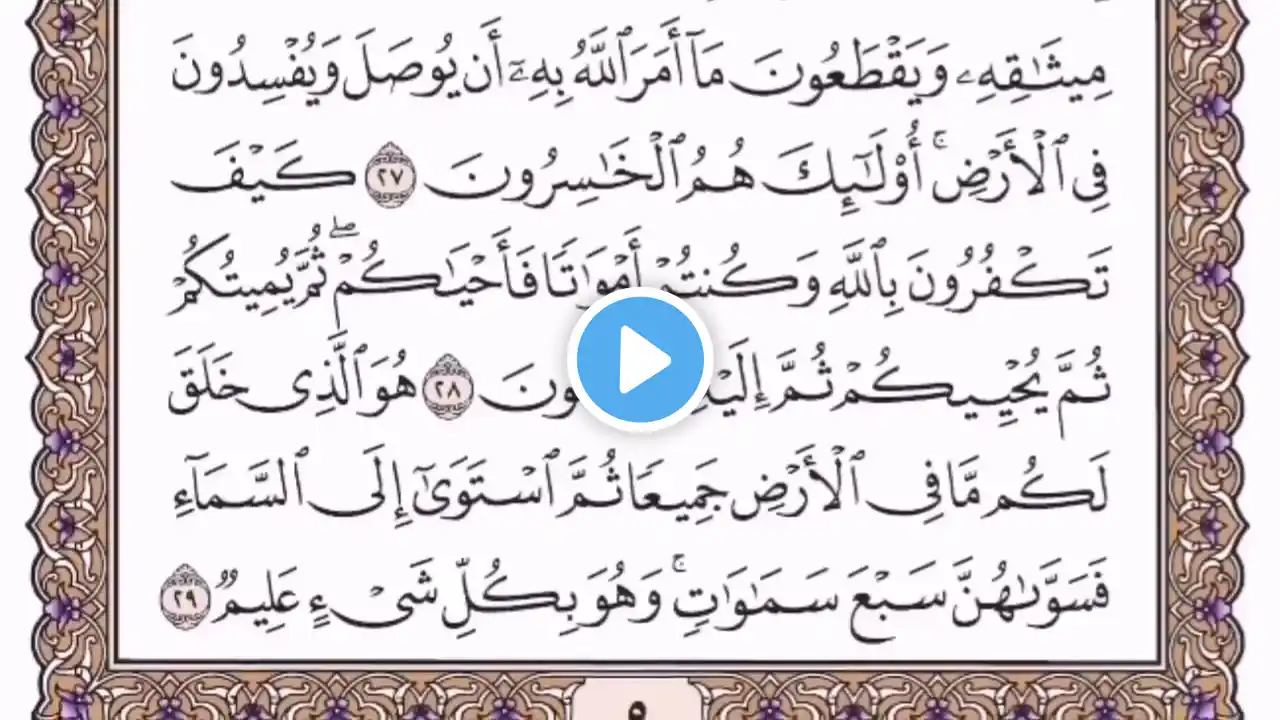 مِيثَٰقِهِۦ وَيَقْطَعُونَ مَآ أَمَرَ ٱللَّهُ بِهِۦٓ أَن يُوصَلَ وَيُفْسِدُونَ
فِى ٱلْأَرْضِ ۚ أُو۟لَٰٓئِكَ هُمُ ٱلْخَٰسِرُونَ ٢٧ كَيْفَ
تَكْفُرُونَ بِٱللَّهِ وَكُنتُمْ أَمْوَٰتًا فَأَحْيَٰكُمْ ۖ ثُمَّ يُمِيتُكُمْ
ثُمَّ يُحْيِيكُمْ ثُمَّ ٢٨ هُوَ ٱلَّذِى خَلَقَ
لَكُم مَّا فِى ٱلْأَرْضِ جَمِيعًا ثُمَّ ٱسْتَوَىٰٓ إِلَى ٱلسَّمَآءِ
فَسَوَّىٰهُنَّ سَبْعَ سَمَٰوَٰتٍ ۚ وَهُوَ بِكُلِّ شَىْءٍ عَلِيمٌ ٢٩